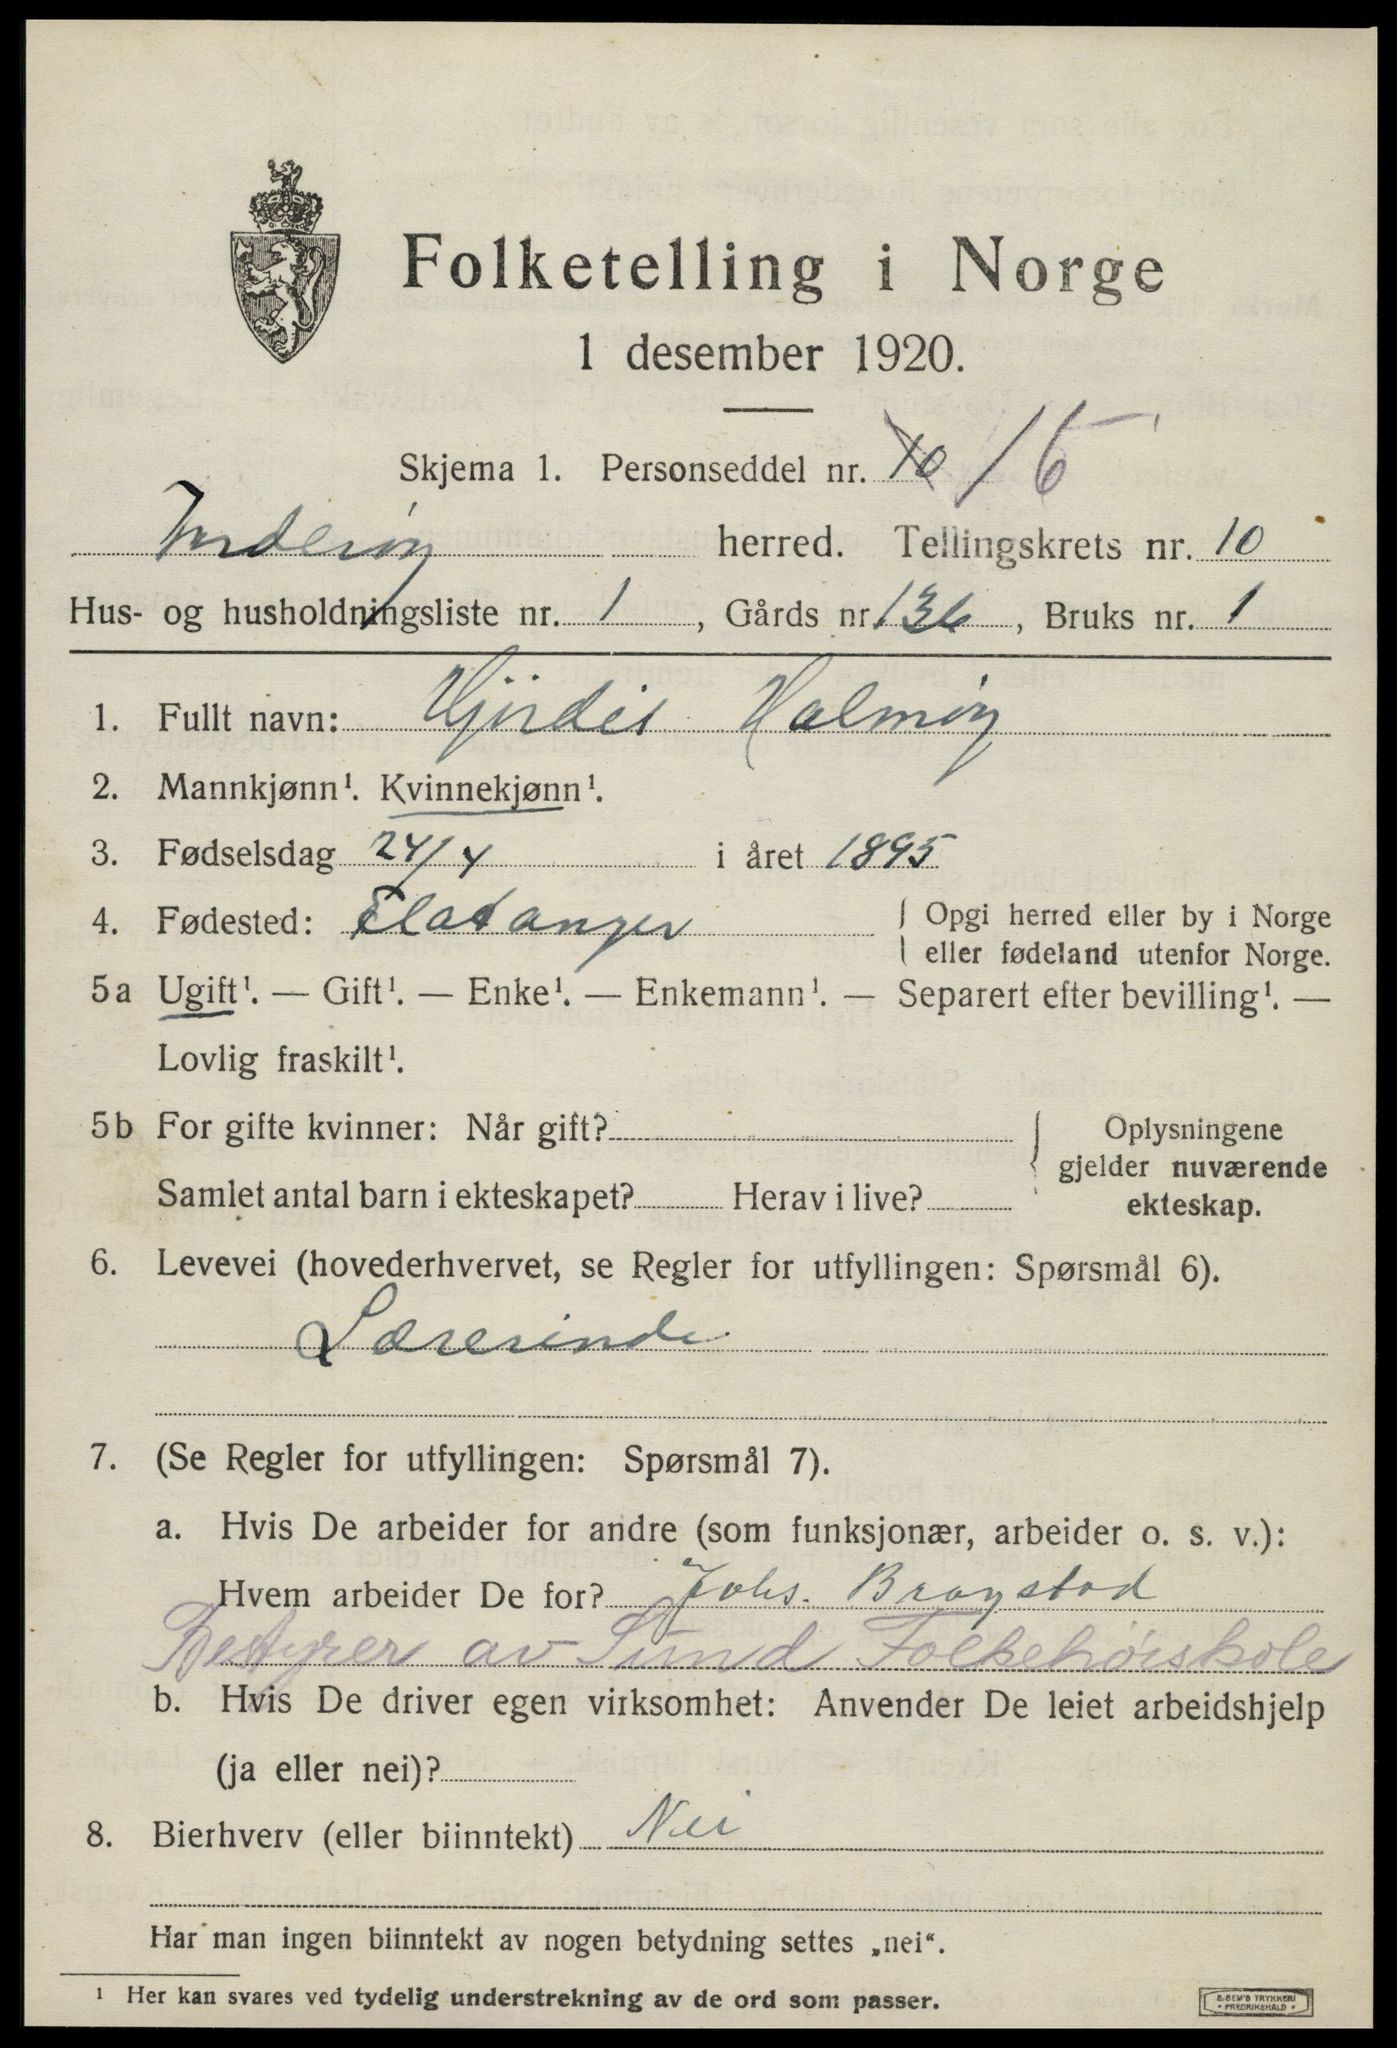 Folketelling i Norge
1 desember 1920.
Skjema 1. Personseddel nr. 10 15
Inderøy herred. Tellingskrets nr. 10
Hus- og husholdningsliste nr. 1, Gårds nr 136, Bruks nr. 1
1. Fullt navn: Hjördis Halmøy
2. Mannkjønn¹. Kvinnekjønn¹.
3. Fødselsdag 24/4 i året 1895
4. Fødested: Flatanger { Opgi herred eller by i Norge
eller fødeland utenfor Norge.
5a Ugift¹. — Gift¹. — Enke¹. — Enkemann¹. — Separert efter bevilling¹. —
Lovlig fraskilt¹.
5b For gifte kvinner: Når gift?
Samlet antal barn i ekteskapet? Herav i live?
Oplysningene
gjelder nuværende
ekteskap.
6. Levevei (hovederhvervet, se Regler for utfyllingen: Spørsmål 6).
Lærerinde
7. (Se Regler for utfyllingen: Spørsmål 7).
a. Hvis De arbeider for andre (som funksjonær, arbeider o. s. v.):
Hvem arbeider De for? Johs. Braystad
Bestyrer av Sund Folkehøiskole
b. Hvis De driver egen virksomhet: Anvender De leiet arbeidshjelp
(ja eller nei)?
8. Bierhverv (eller biinntekt) Nei
Har man ingen biinntekt av nogen betydning settes „nei“.
¹ Her kan svares ved tydelig understrekning av de ord som passer.
E. SEM'S TRYKKERI
• FREDRIKSHALD •